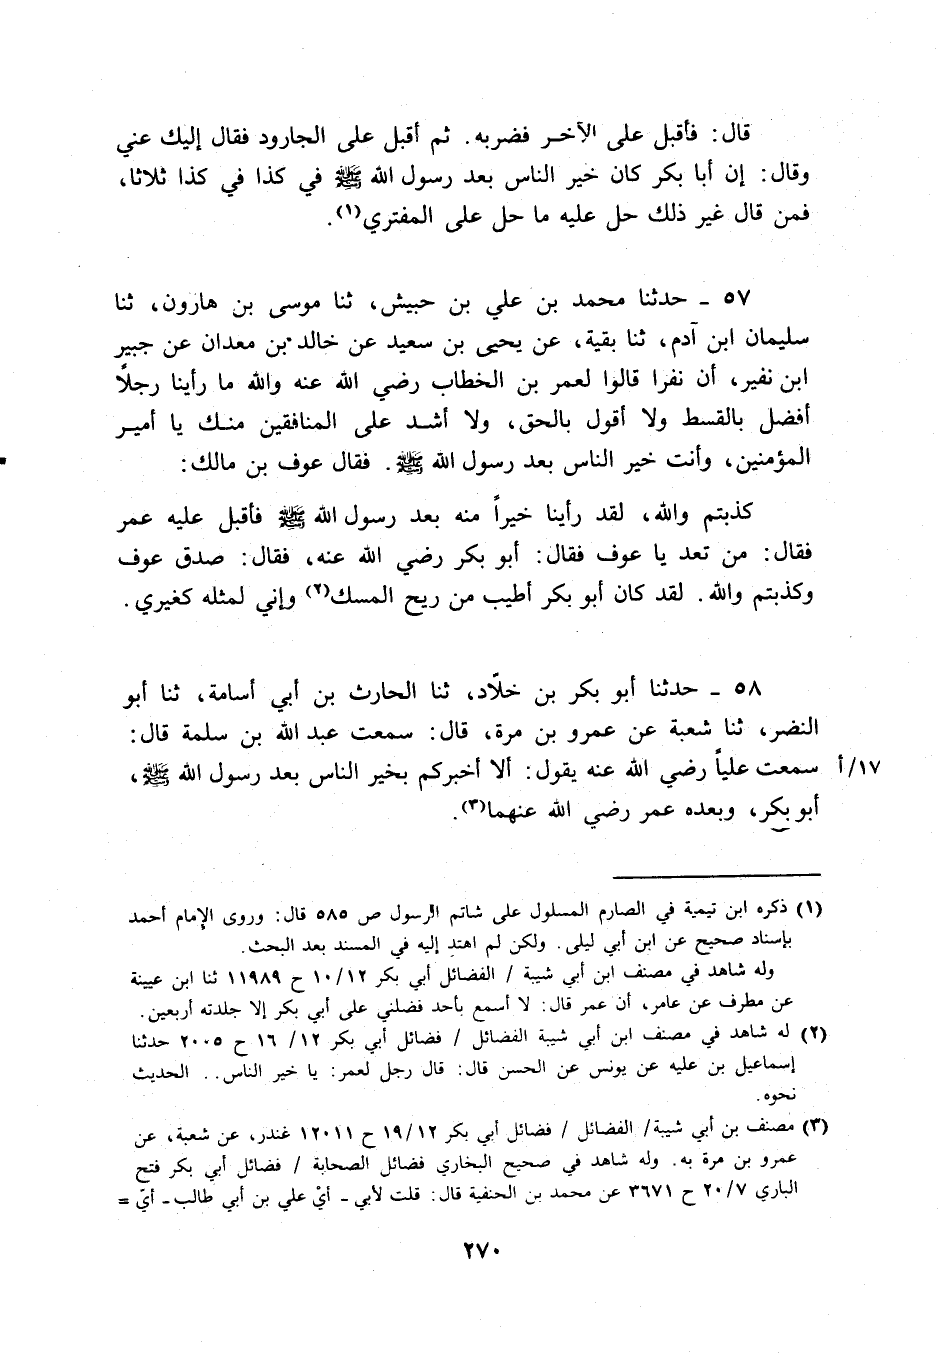 قال: فأقبل على الآخر فضربه. ثم أقبل على الجارود فقال إليك عني
وقال: إن أبا بكر كان خير الناس بعد رسول الله ﷺ في كذا في كذا ثلاثا،
فمن قال غير ذلك حل عليه ما حل على المفتري(١).
٥٧ ـ حدثنا محمد بن علي بن حبيش، ثنا موسى بن هارون، ثنا
سليمان ابن آدم، ثنا بقية، عن يحيى بن سعيد عن خالد بن معدان عن جبير
ابن نفير، أن نفرا قالوا لعمر بن الخطاب رضي الله عنه والله ما رأينا رجلاً
أفضل بالقسط ولا أقول بالحق، ولا أشد على المنافقين منك يا أمير
المؤمنين، وأنت خير الناس بعد رسول الله ﷺ. فقال عوف بن مالك:
كذبتم والله، لقد رأينا خيراً منه بعد رسول الله ﷺ فأقبل عليه عمر
فقال: من تعد يا عوف فقال: أبو بكر رضي الله عنه، فقال: صدق عوف
وكذبتم والله. لقد كان أبو بكر أطيب من ريح المسك(٢) وإني لمثله كغيري.
٥٨ ـ حدثنا أبو بكر بن خلّاد، ثنا الحارث بن أبي أسامة، ثنا أبو
النضر، ثنا شعبة عن عمرو بن مرة، قال: سمعت عبد الله بن سلمة قال:
١٧/أ سمعت علياً رضي الله عنه يقول: ألا أخبركم بخير الناس بعد رسول الله ﷺ،
أبو بكر، وبعده عمر رضي الله عنهما(٣).
(١) ذكره ابن تيمية في الصارم المسلول على شاتم الرسول ص ٥٨٥ قال: وروى الإمام أحمد
بإسناد صحيح عن ابن أبي ليلى. ولكن لم اهتدِ إليه في المسند بعد البحث.
وله شاهد في مصنف ابن أبي شيبة / الفضائل أبي بكر ١٠/١٢ ح ١١٩٨٩ ثنا ابن عيينة
عن مطرف عن عامر، أن عمر قال: لا أسمع بأحد فضلني على أبي بكر إلا جلدته أربعين.
(٢) له شاهد في مصنف ابن أبي شيبة الفضائل / فضائل أبي بكر ١٢/ ١٦ ح ٢٠٠٥ حدثنا
إسماعيل بن عليه عن يونس عن الحسن قال: قال رجل لعمر: يا خير الناس.. الحديث
نحوه.
(٣) مصنف بن أبي شيبة/ الفضائل / فضائل أبي بكر ١٩/١٢ ح ١٢٠١١ غندر، عن شعبة، عن
عمرو بن مرة به. وله شاهد في صحيح البخاري فضائل الصحابة / فضائل أبي بكر فتح
الباري ٢٠/٧ ح ٣٦٧١ عن محمد بن الحنفية قال: قلت لأبي ـ أيْ علي بن أبي طالب ـ أيّ =
٢٧٠